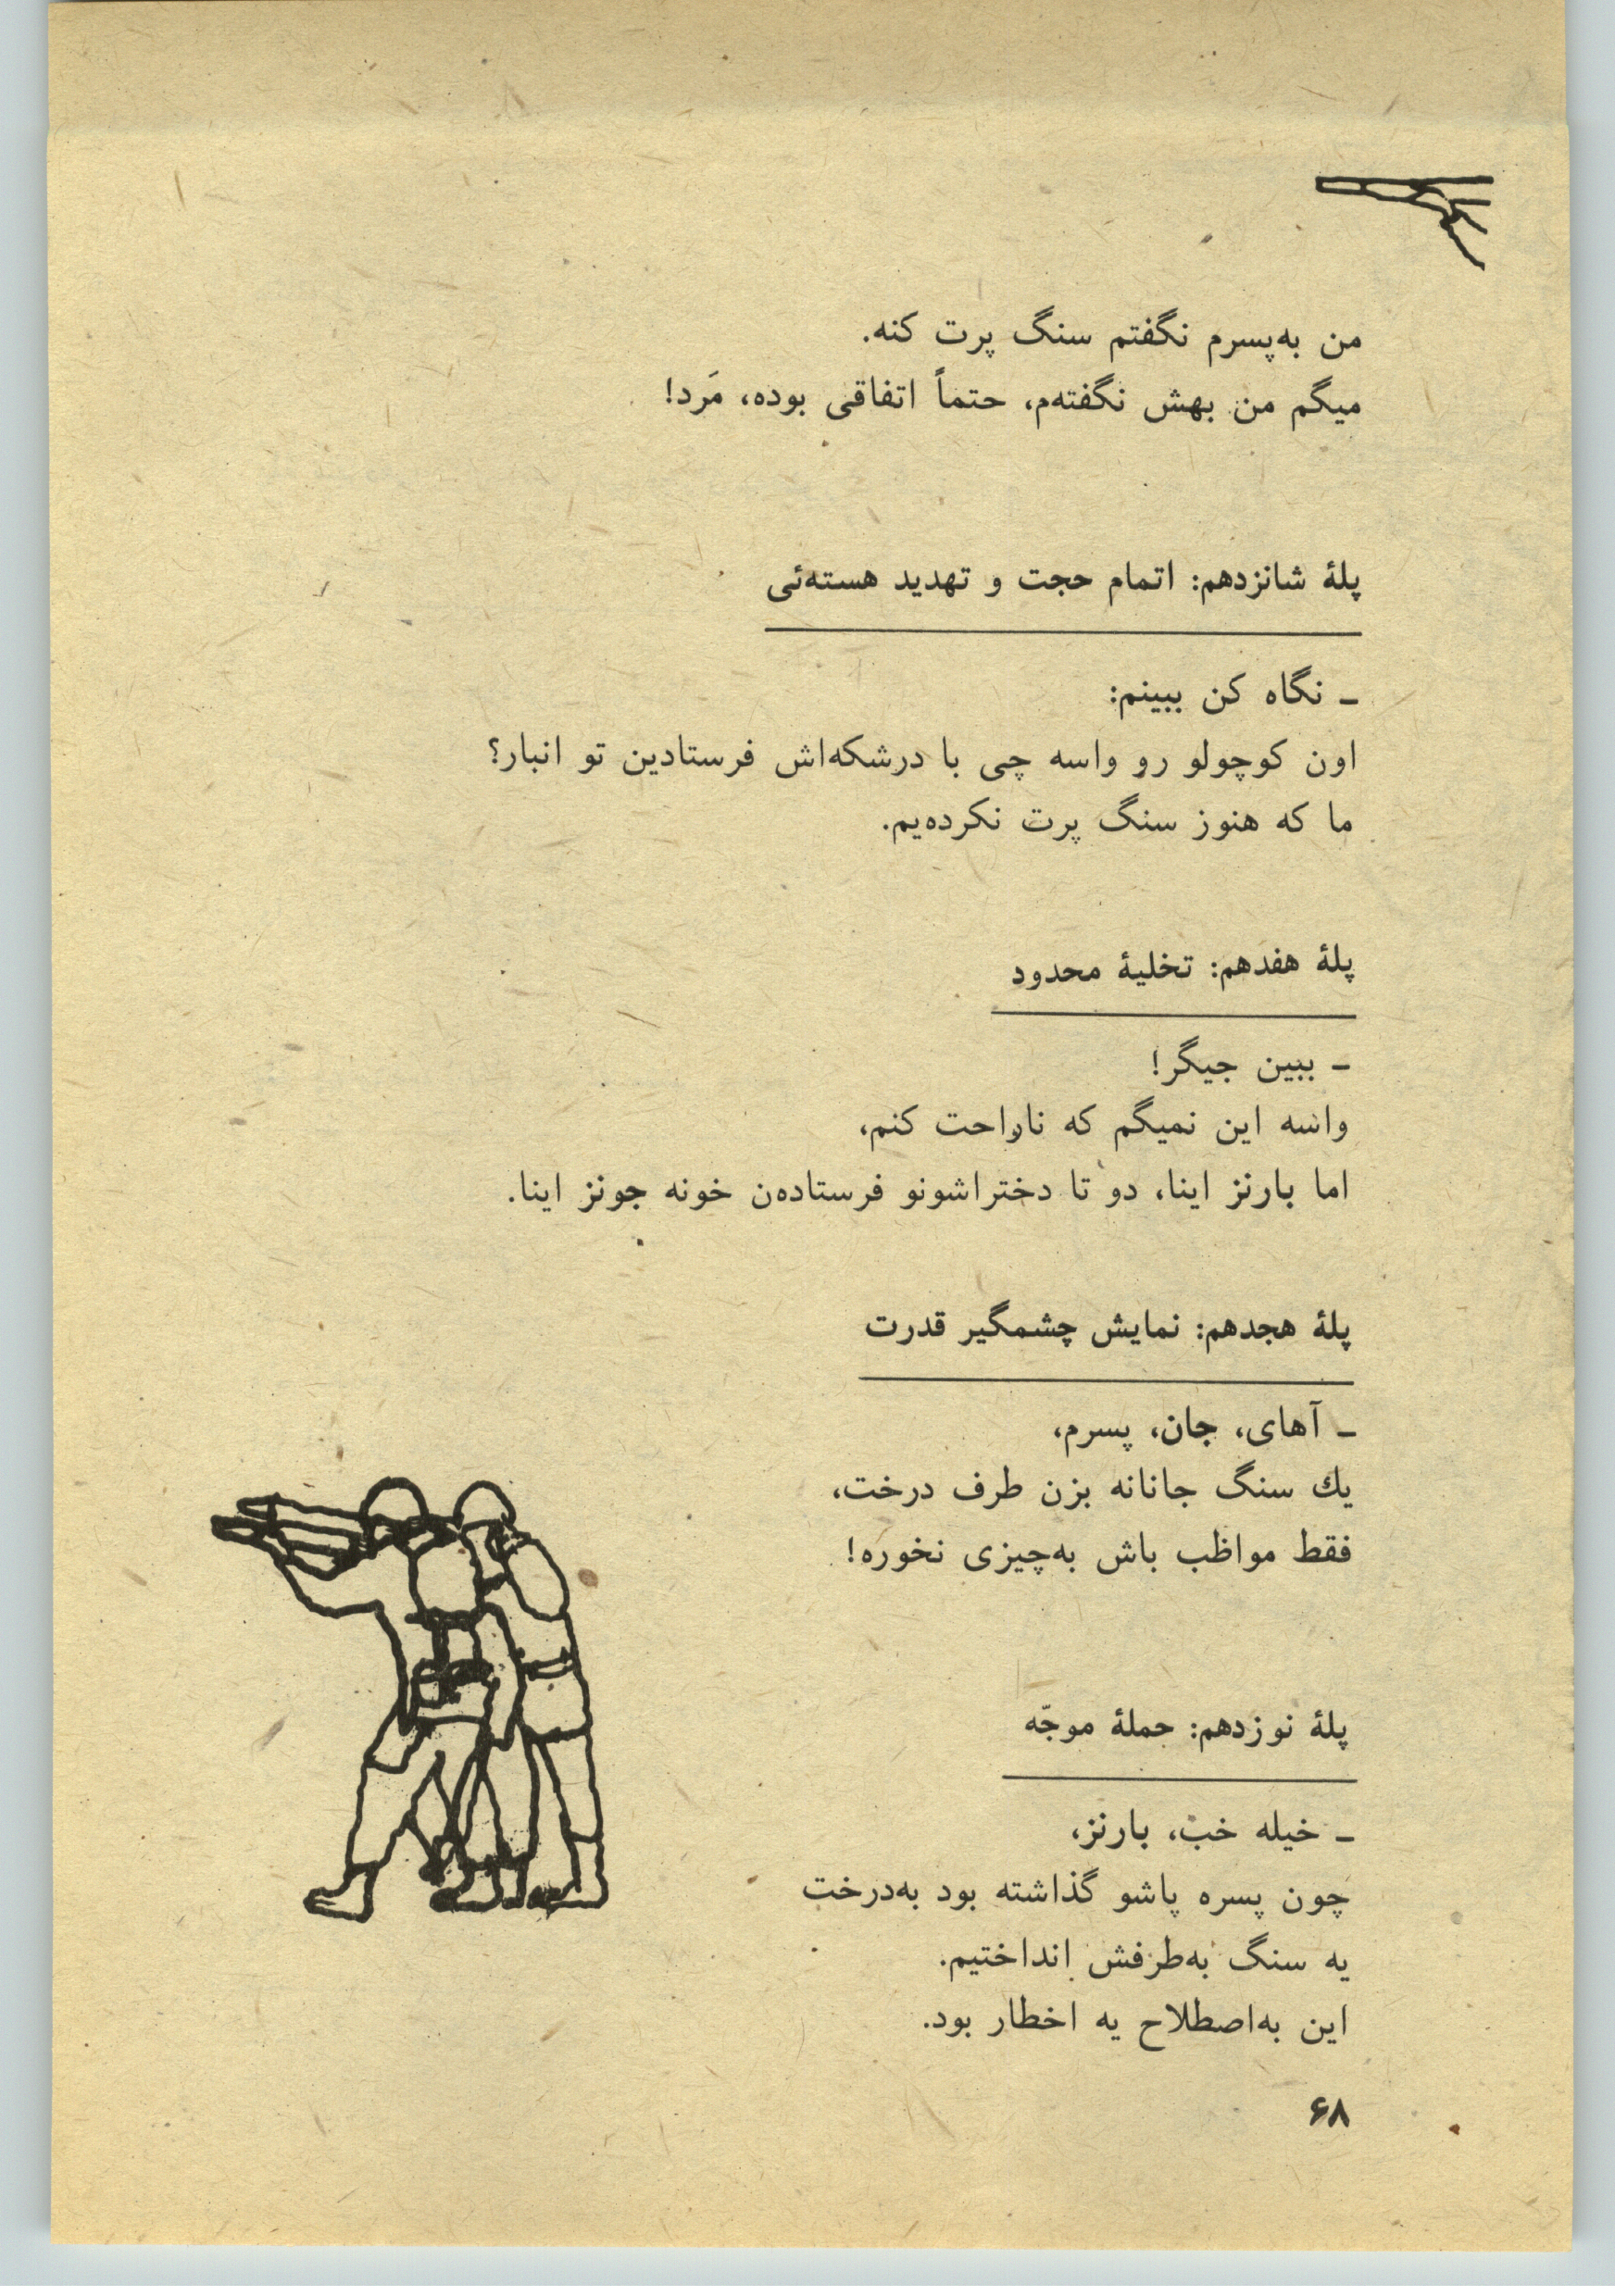 من به‌پسرم نگفتم سنگ پرت کنه.
میگم من بهش نگفته‌م، حتماً اتفاقی بوده، مَرد!
پلهٔ شانزدهم: اتمام حجت و تهدید هسته‌ئی
ـ نگاه کن ببینم:
اون کوچولو رو واسه چی با درشکه‌اش فرستادین تو انبار؟
ما که هنوز سنگ پرت نکرده‌یم.
پلهٔ هفدهم: تخلیهٔ محدود
ـ ببین جیگر!
واسه این نمیگم که ناراحت کنم،
اما بارنز اینا، دو تا دختراشونو فرستاده‌ن خونه جونز اینا.
پلهٔ هجدهم: نمایش چشمگیر قدرت
ـ آهای، جان، پسرم،
یك سنگ جانانه بزن طرف درخت،
فقط مواظب باش به‌چیزی نخوره!
پلهٔ نوزدهم: حملهٔ موجّه
ـ خیله خب، بارنز،
چون پسره پاشو گذاشته بود به‌درخت
یه سنگ به‌طرفش انداختیم.
این به‌اصطلاح یه اخطار بود.
۶۸